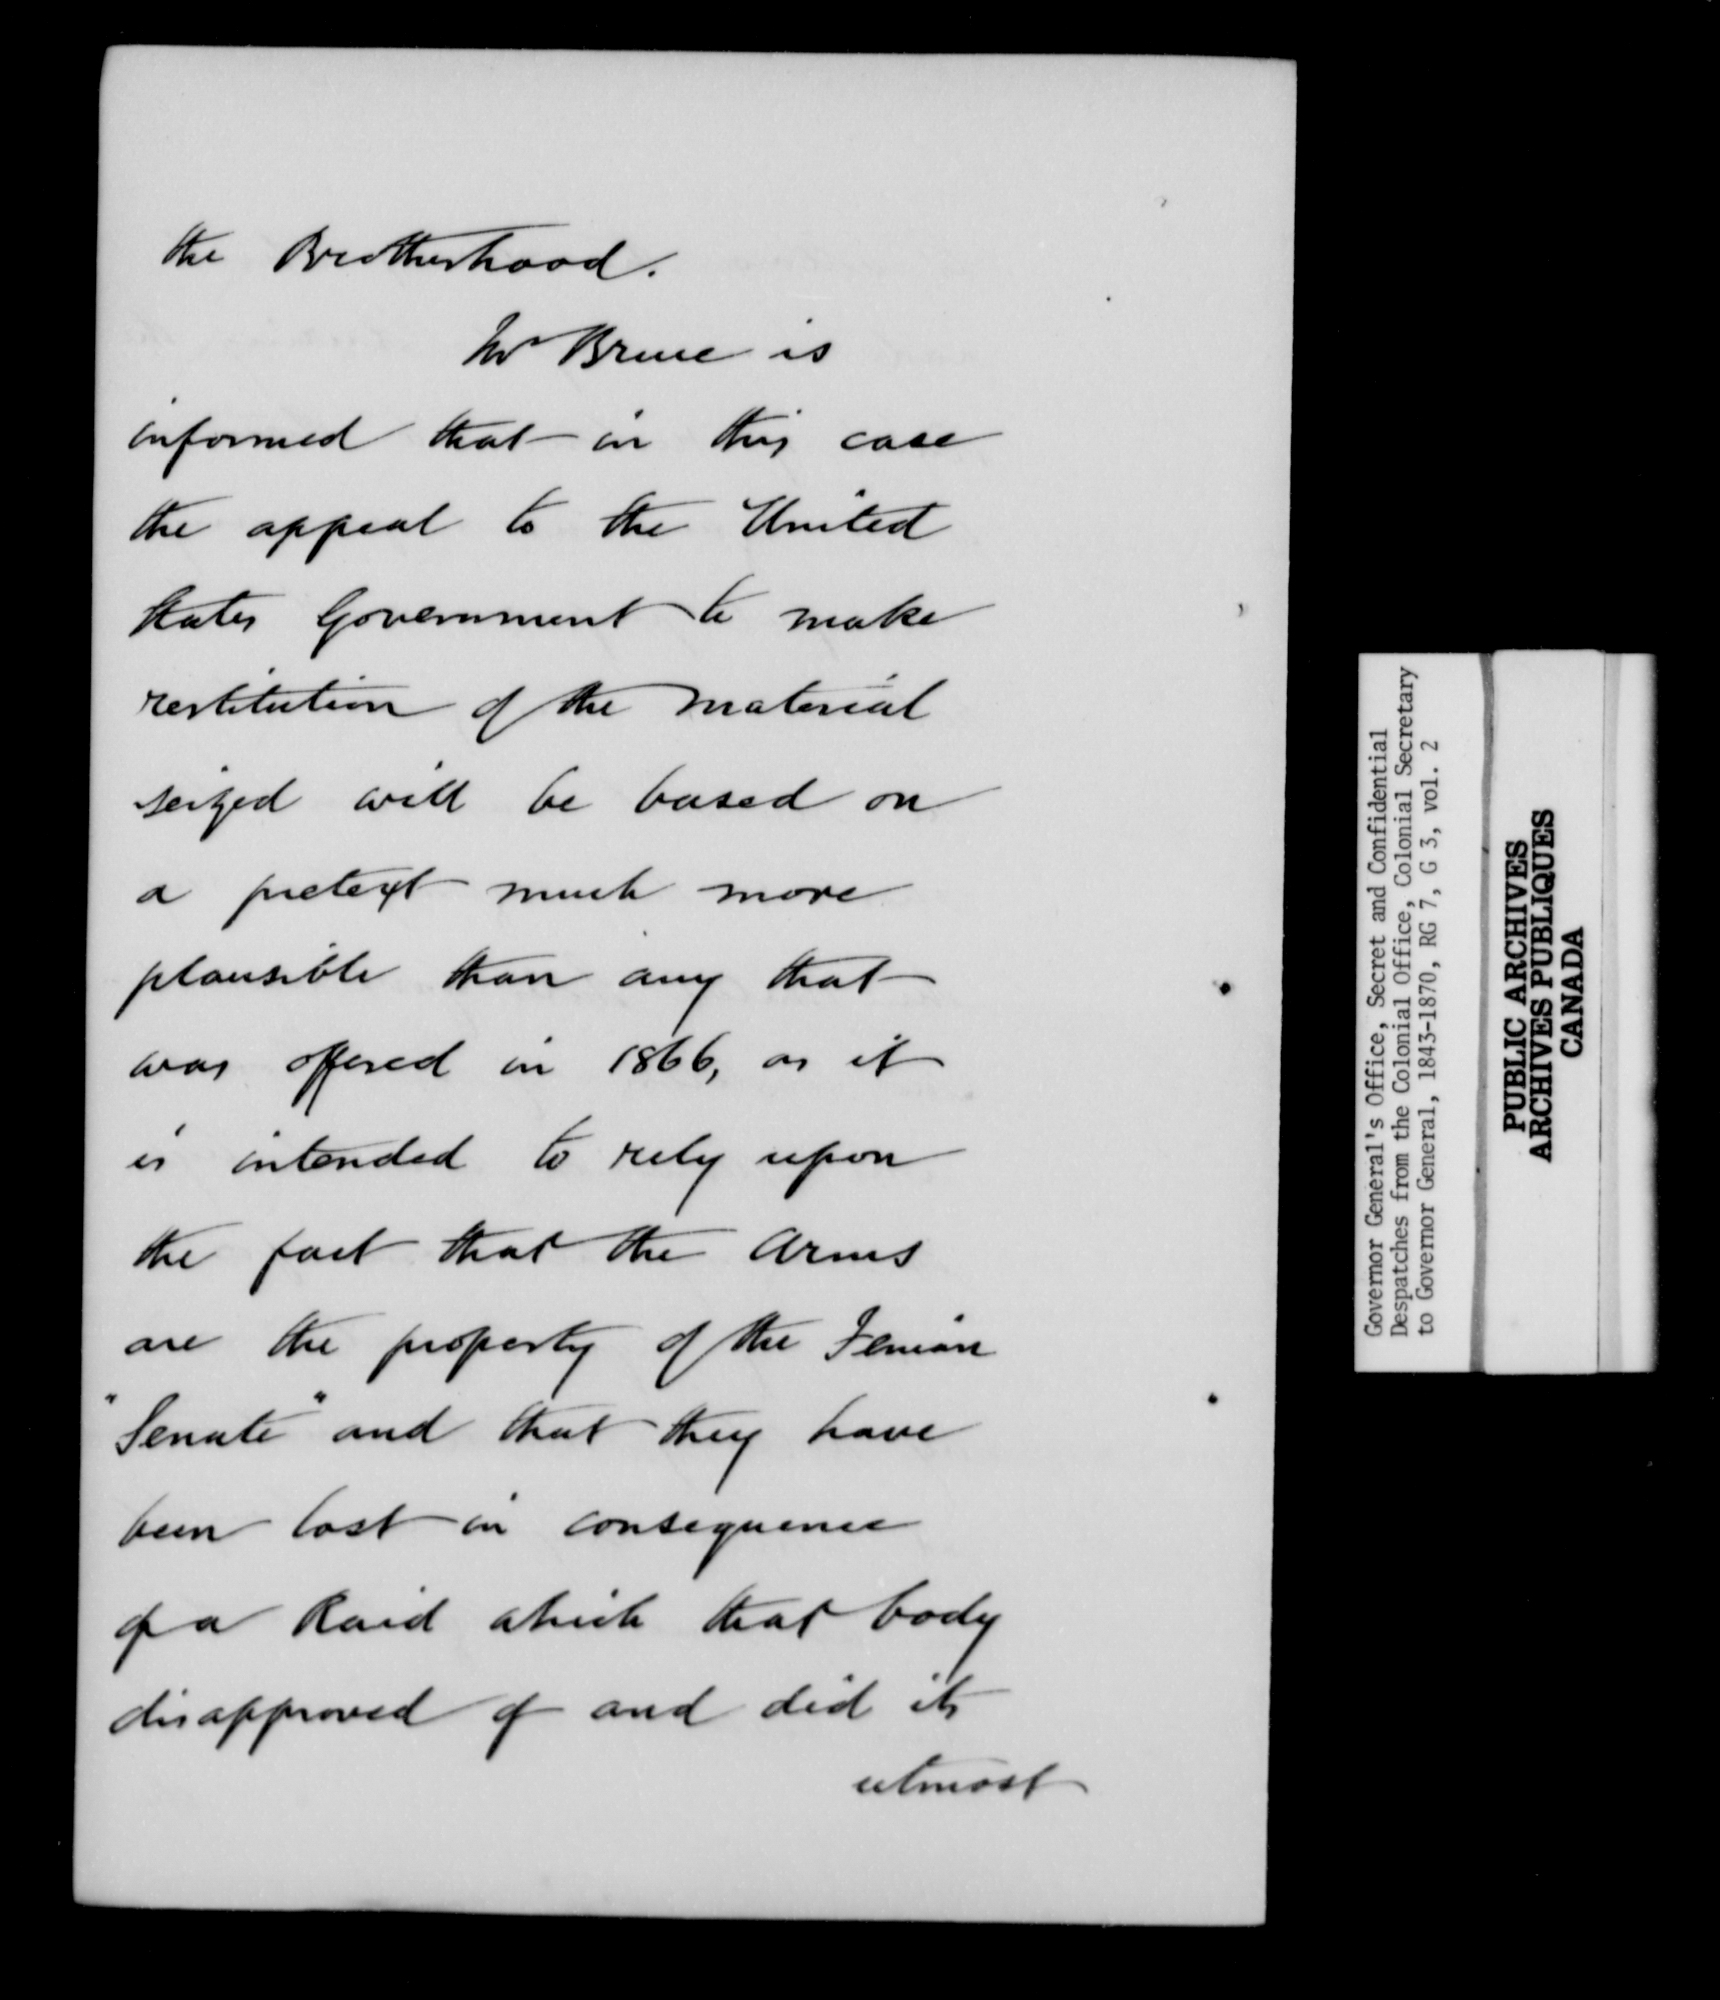 the Brotherhood.
Mr Bruce is
informed that in this case
the appeal to the United
States Government to make
restitution of the material
seized will be based on
a pretext much more
plausible than any that
was offered in 1866, as it
is intended to rely upon
the fact that the Arms
are the property of the Fenian
"Senate" and that they have
been lost in consequence
of a Raid which that body
disapproved of and did its
utmost
Governor General's Office, Secret and Confidential
Despatches from the Colonial Office, Colonial Secretary
to Governor General, 1843-1870, RG 7, G 3, vol. 2
PUBLIC ARCHIVES
ARCHIVES PUBLIQUES
CANADA